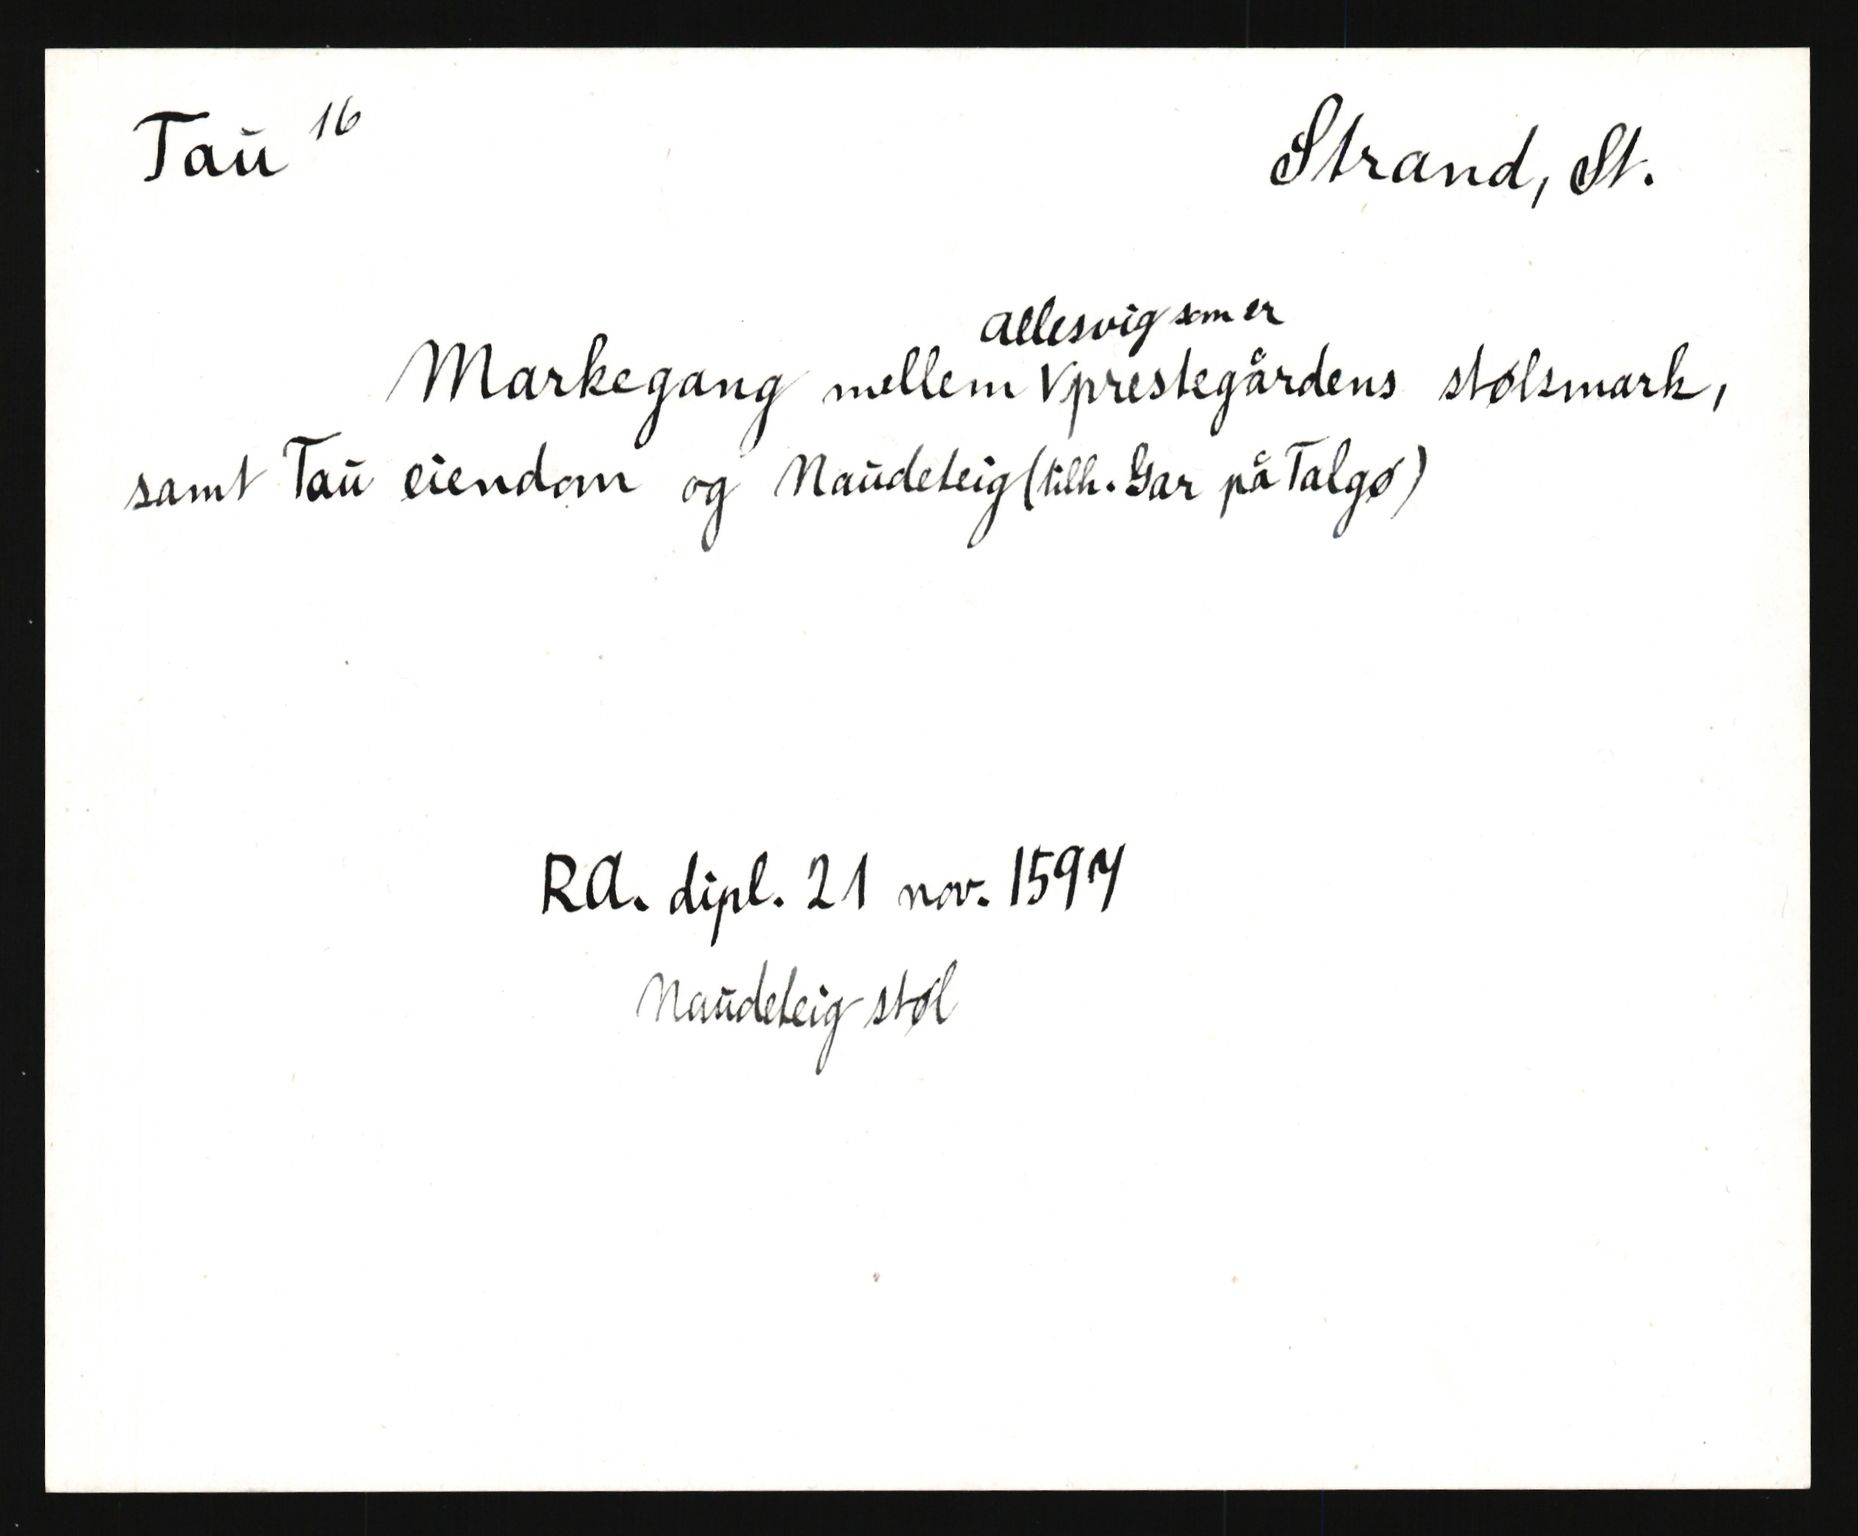 Tau 16
Strand, St.
Allesvig som er
Markegang mellem V prestegårdens stølsmark,
samt Tau eiendom og Naudeteig (tilh. Gar på Talgø)
RA. dipl. 21 nov. 1597
Naudeteig støl